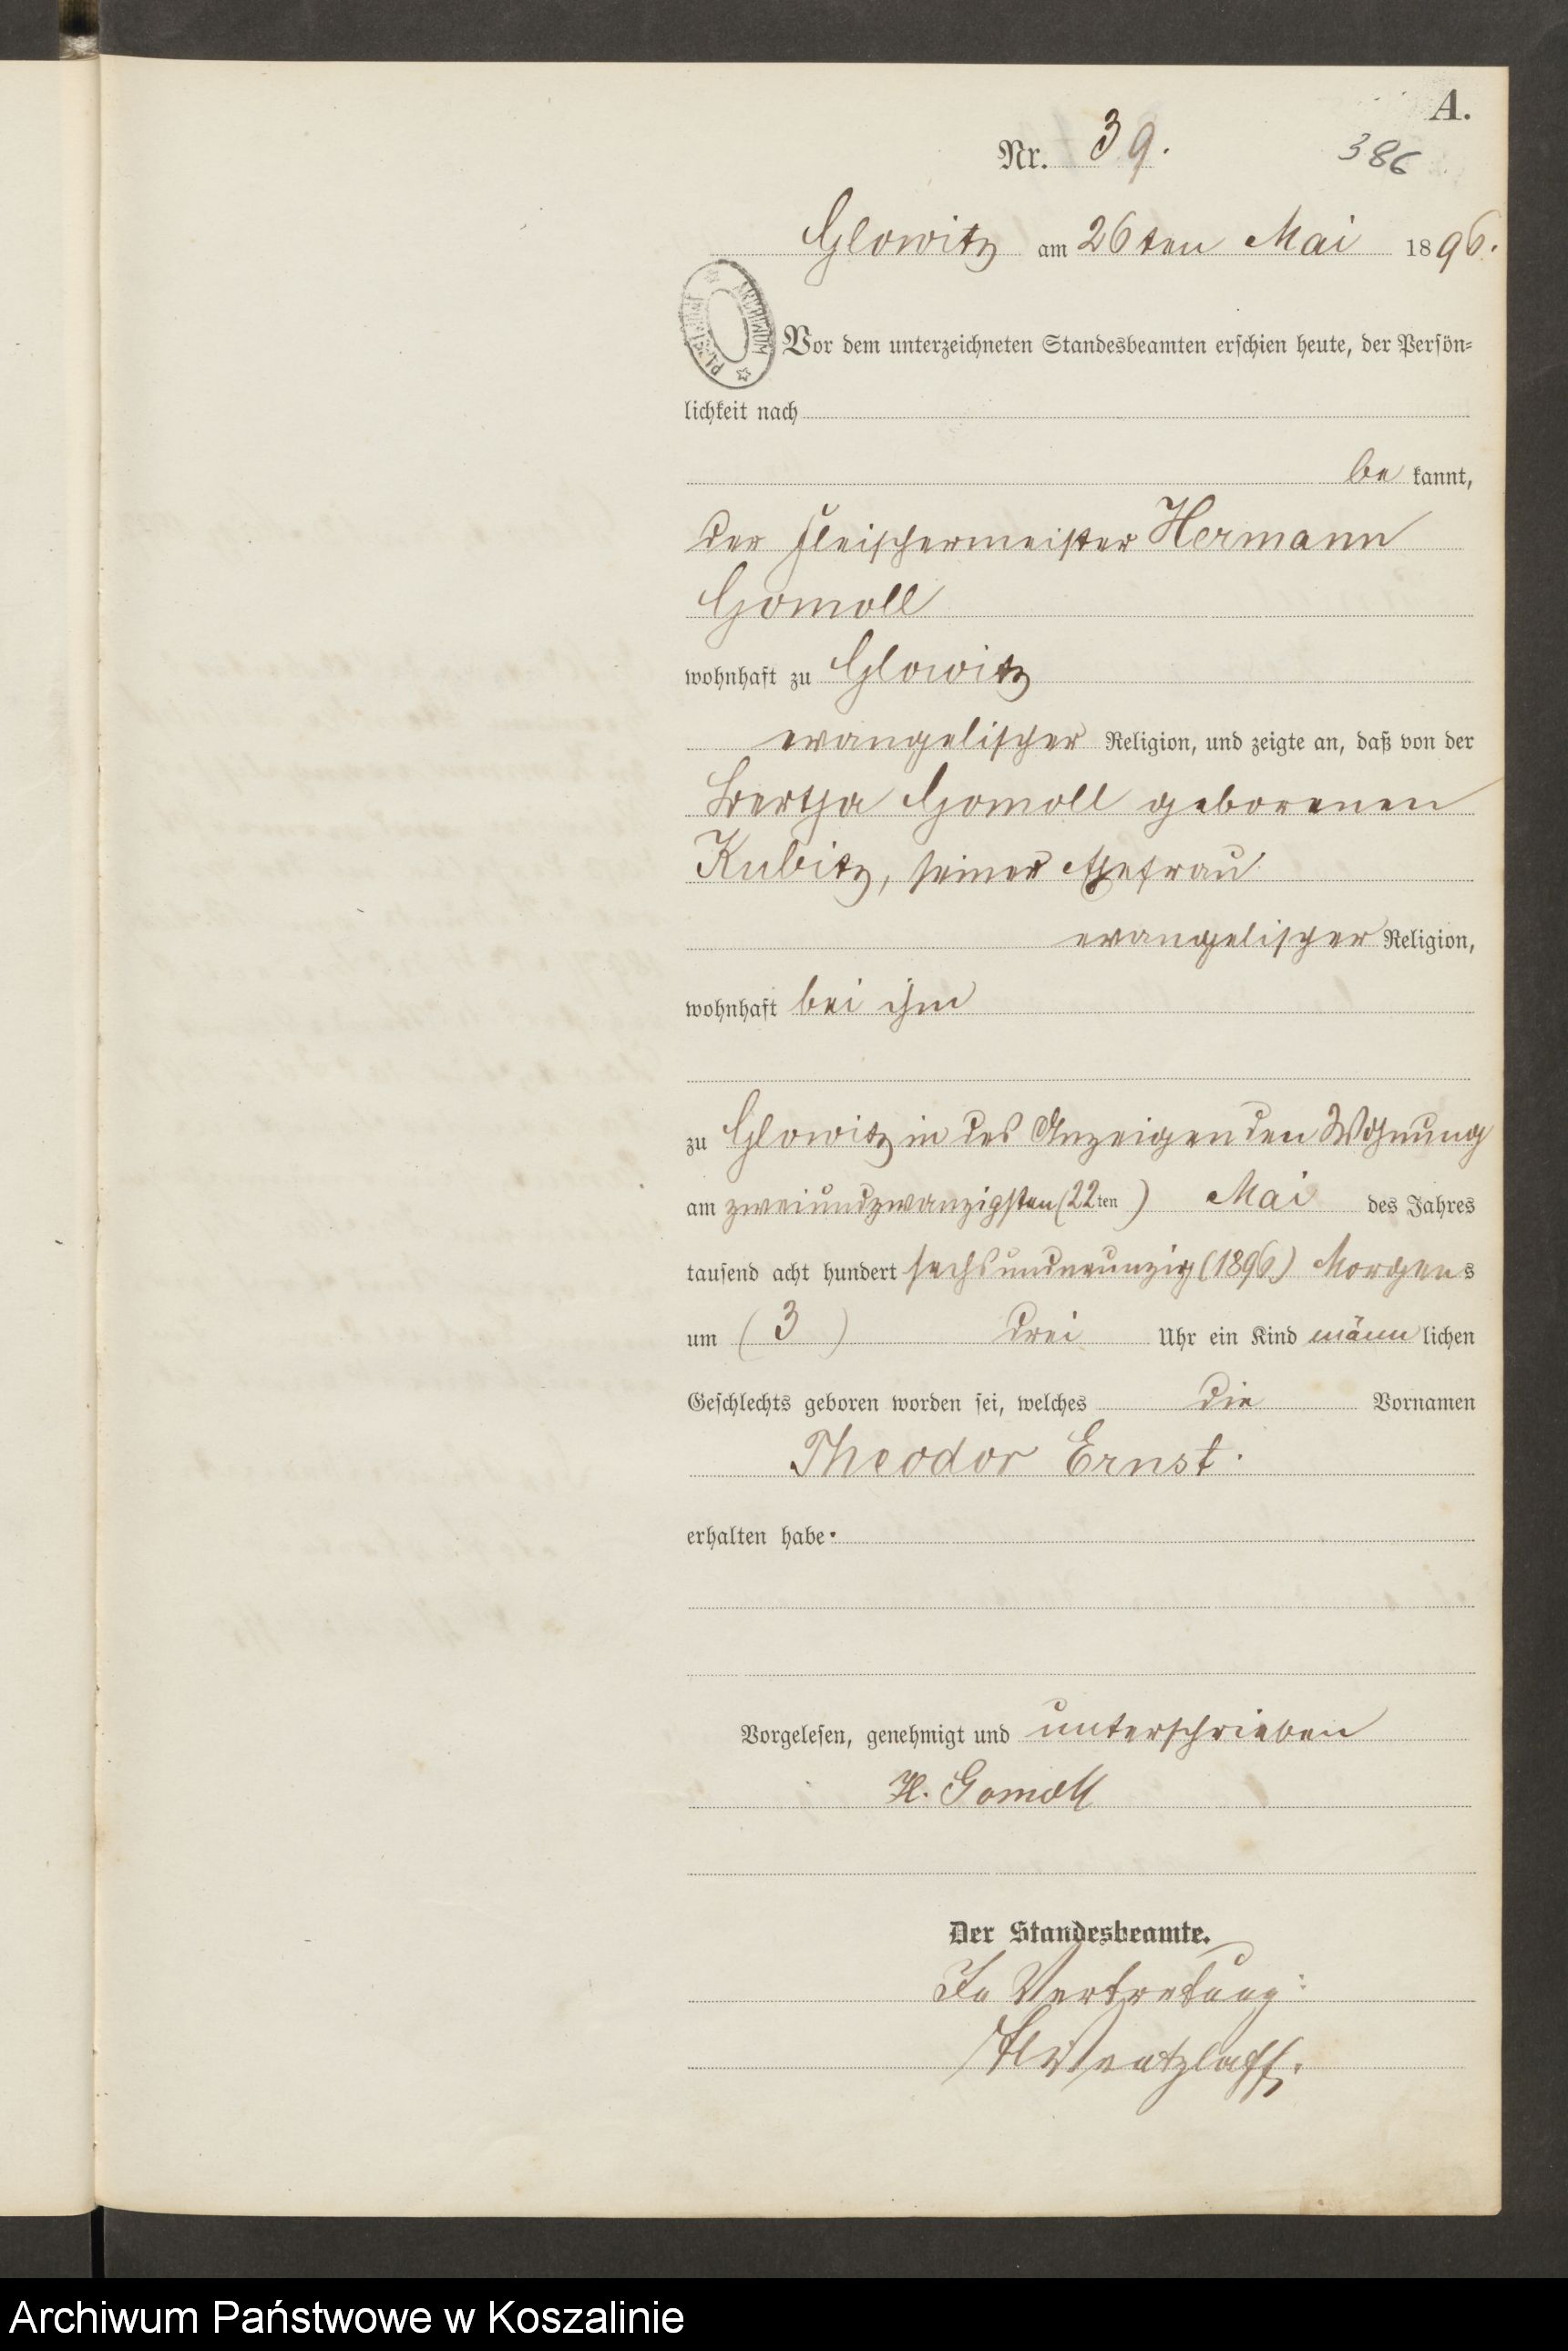 A.
Nr. 39.
386
Glowitz am 26ten Mai 1896.
ARCHIWUM PAŃSTWOWE
Vor dem unterzeichneten Standesbeamten erschien heute, der Persön-
lichkeit nach
be kannt,
der Fleischermeister Hermann
Gomoll
wohnhaft zu Glowitz
evangelischer Religion, und zeigte an, daß von der
Bertha Gomoll geborenen
Kubitz, seiner Ehefrau
evangelischer Religion,
wohnhaft bei ihm
zu Glowitz in des Anzeigenden Wohnung
am zweiundzwanzigsten (22ten) Mai des Jahres
tausend acht hundert sechsundneunzig (1896) Morgens
um (3) drei Uhr ein Kind männlichen
Geschlechts geboren worden sei, welches die Vornamen
Theodor Ernst.
erhalten habe.
Vorgelesen, genehmigt und unterschrieben
H. Gomoll
Der Standesbeamte.
In Vertretung:
Wentzlaff.
Archiwum Państwowe w Koszalinie